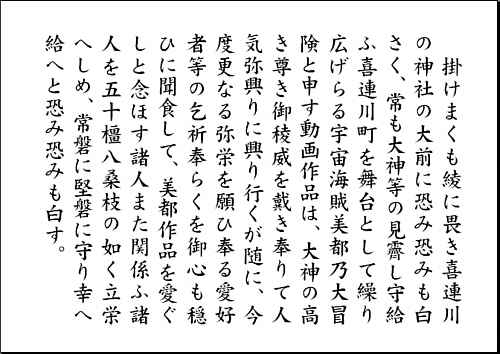 掛けまくも綾に畏き喜連川
の神社の大前に恐み恐みも白
さく、常も大神等の見霽し守給
ふ喜連川町を舞台として繰り
広げらる宇宙海賊美都乃大冒
険と申す動画作品は、大神の高
き尊き御稜威を戴き奉りて人
気弥興りに興り行くが随に、今
度更なる弥栄を願ひ奉る愛好
者等の乞祈奉らくを御心も穏
ひに聞食して、美都作品を愛ぐ
しと念ほす諸人また関係ふ諸
人を五十橿八桑枝の如く立栄
へしめ、常磐に堅磐に守り幸へ
給へと恐み恐みも白す。